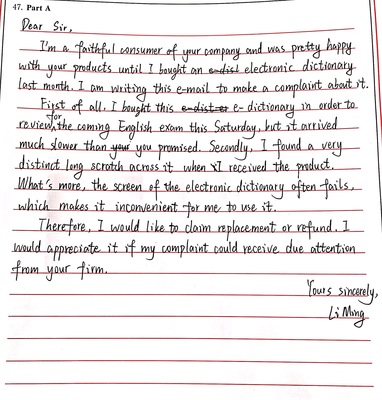 47. Part A
Dear Sir,
I'm a faithful consumer of your company and was pretty happy
with your products until I bought an electronic dictionary
last month. I am writing this e-mail to make a complaint about it.
First of all, I bought this e-dictionary in order to
review for the coming English exam this Saturday, but it arrived
much slower than you promised. Secondly, I found a very
distinct long scratch across it when I received the product.
What's more, the screen of the electronic dictionary often fails,
which makes it inconvenient for me to use it.
Therefore, I would like to claim replacement or refund. I
would appreciate it if my complaint could receive due attention
from your firm.
Yours sincerely,
Li Ming